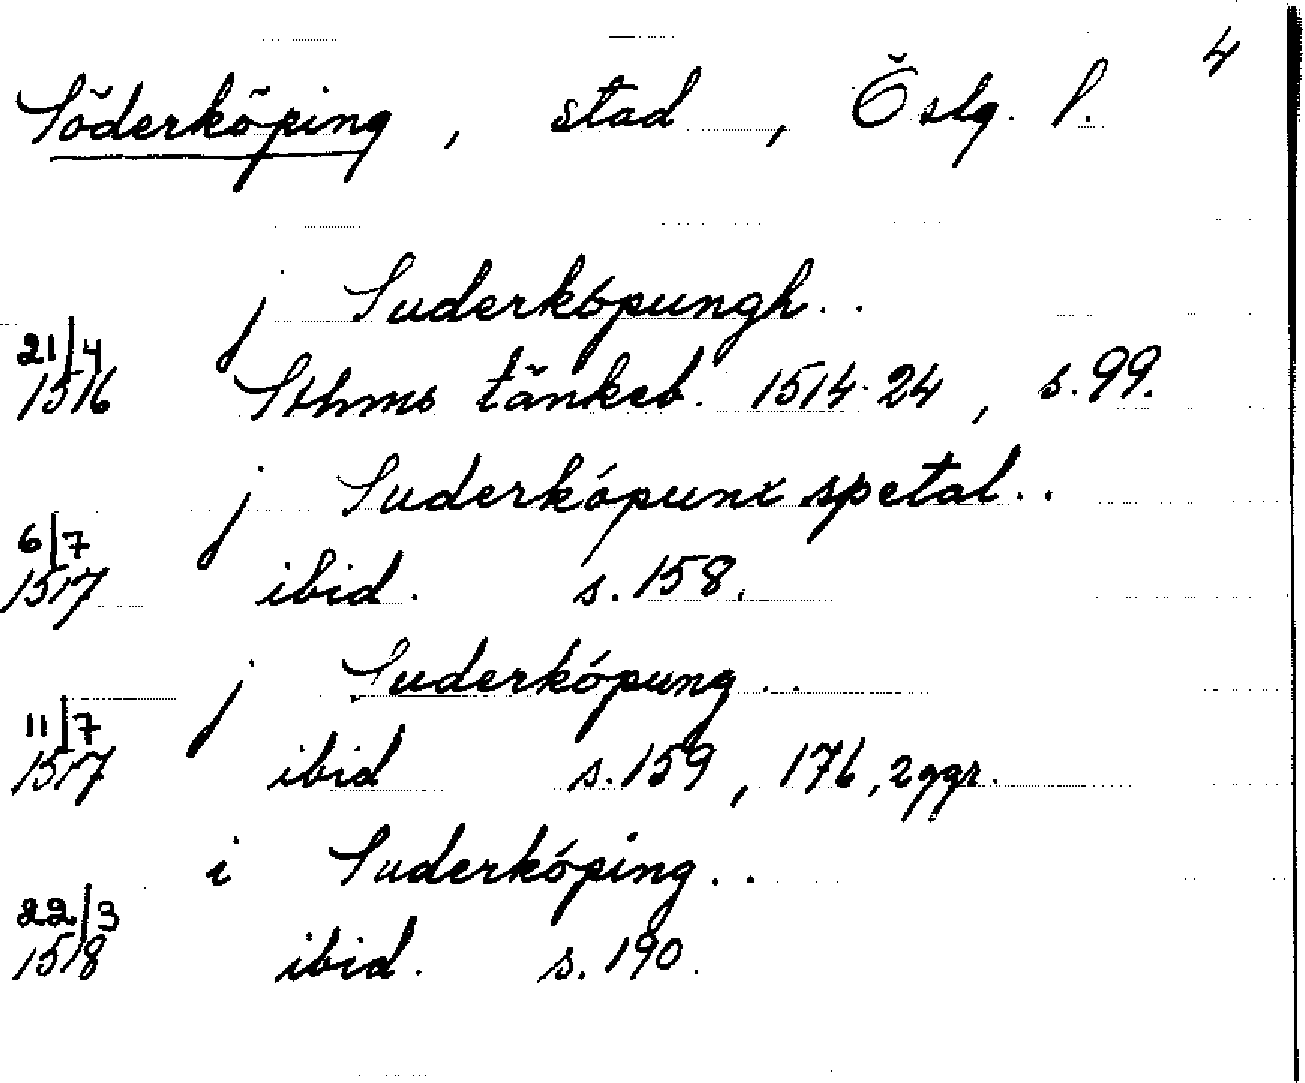 4
Söderköping, stad, Öslg. l.
j Suderkópungh..
21/4
1516 Sthms tänkeb. 1514-24, s.99.
j Suderkópunx spetal..
6/7
1517 ibid. s.158.
j Suderkópung..
11/7
1517 ibid s.159, 176, 2ggr.
i Suderkóping..
22/3
1518 ibid. s.190.